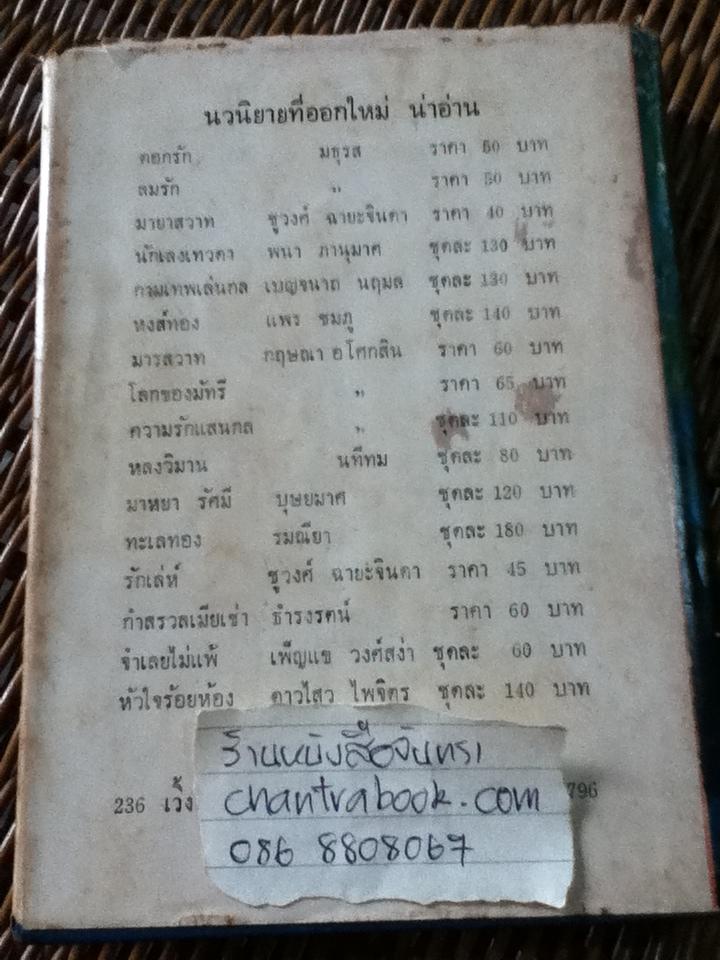 นวนิยายที่ออกใหม่ น่าอ่าน
ดอกรัก มธุรส ราคา 50 บาท
ลมรัก " ราคา 50 บาท
มายาสวาท ชูวงศ์ ฉายะจินดา ราคา 40 บาท
นักเลงเทวดา พนา ภานุมาศ ชุดละ 130 บาท
กามเทพเล่นกล เบญจนาถ นฤมล ชุดละ 130 บาท
หงส์ทอง แพร ชมภู ชุดละ 140 บาท
มารสวาท กฤษณา อโศกสิน ราคา 60 บาท
โลกของมัทรี " ราคา 65 บาท
ความรักแสนกล " ชุดละ 110 บาท
หลงวิมาน นทีทม ชุดละ 80 บาท
มาหยา รัศมี บุษยมาศ ชุดละ 120 บาท
ทะเลทอง รมณียา ชุดละ 180 บาท
รักเล่ห์ ชูวงศ์ ฉายะจินดา ราคา 45 บาท
กำสรวลเมียเช่า ธำรงรตน์ ราคา 60 บาท
จำเลยไม่แพ้ เพ็ญแข วงศ์สง่า ชุดละ 60 บาท
หัวใจร้อยห้อง ดาวไสว ไพจิตร ชุดละ 140 บาท
ร้านหนังสือจันทรา
236 เวิ้ง chantrabook.com 796
086 8808067